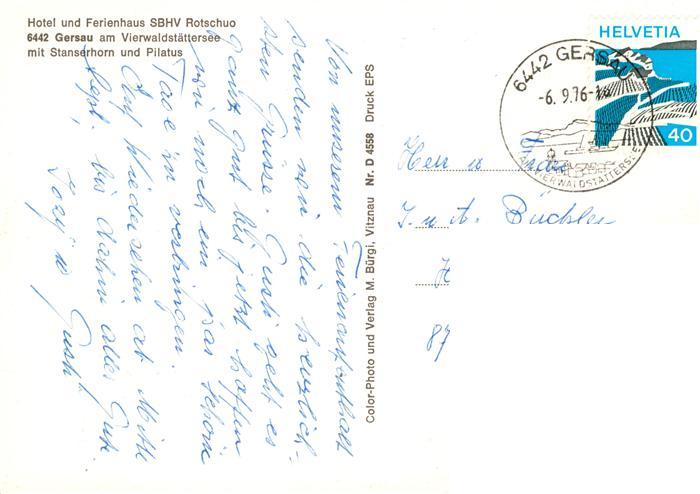 Hotel und Ferienhaus SBHV Rotschuo
6442 Gersau am Vierwaldstättersee
mit Stanserhorn und Pilatus
Von unserem Ferienaufenthalt
senden wir die herzlich-
sten Grüsse. Gusti geht es
ganz gut bis jetzt hoffen
wir noch ein paar schöne
Tage zu verbringen.
Auf Wiedersehen ab Mitte
Sept. bis dahin alles Gute
Gusti
Color-Photo und Verlag M. Bürgi, Vitznau Nr. D 4558 Druck EPS
HELVETIA
40
6442 GERSAU
-6. 9.76-
AM VIERWALDSTÄTTERSEE
Herr u
J. u. A. Büchler
87